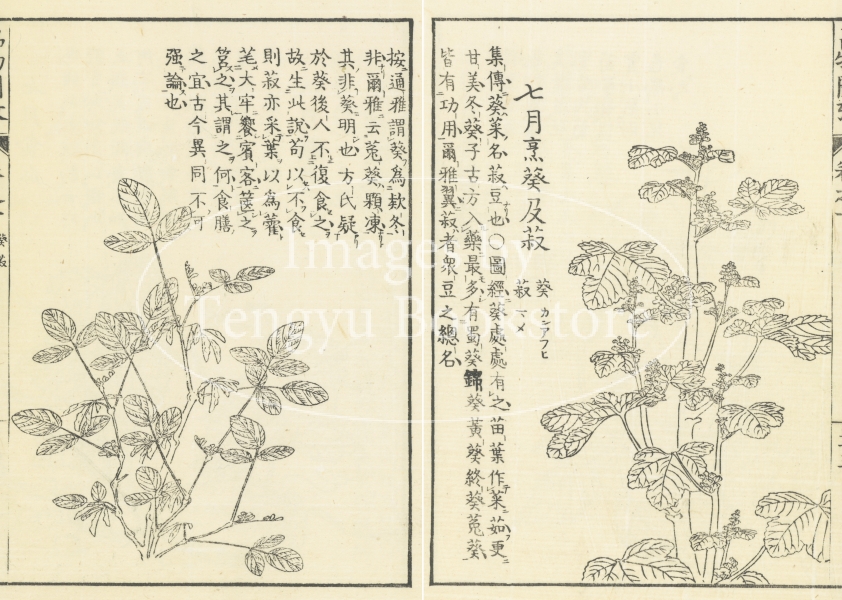 七月烹葵及菽
葵 カラアフヒ
菽 マメ
集傳葵菜名菽豆也○圖經葵處處有之苗葉作菜茹更
甘美冬葵子古方入藥最多有蜀葵錦葵黃葵終葵菟葵
皆有功用爾雅翼菽者衆豆之總名
按通雅謂葵為款冬
非爾雅云菟葵顆凍
其非葵明也方氏疑
於葵後人不復食之
故生此說苟以不食
則菽亦采葉以為藿
芼大牢饗賓客筐之
筥之其謂之何食膳
之宜古今異同不可
强論也
葵菽
Images by
Tengyu Bookstore